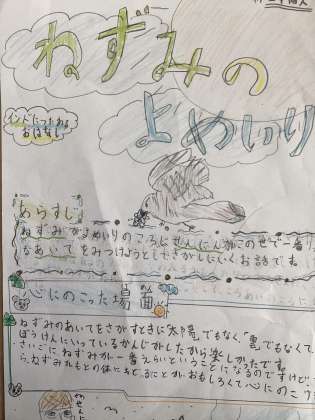 ねずみの
よめいり
インドにつたわる
おはなし
あらすじ
ねずみがよめいりのころにせんにんがこのせで一番り
なあいてをみつけようとしてさがしにいくお話です
心にのこった場面
ねずみのあいてもさがすときに太陽でもなく「雲でもなくて
ぼうけんにいっているかんじがしたから楽しかったです
さいごにねずみが一番えらいということになるのですけど
ねずみれもとの体にもどることがおもしろくて心にのこり